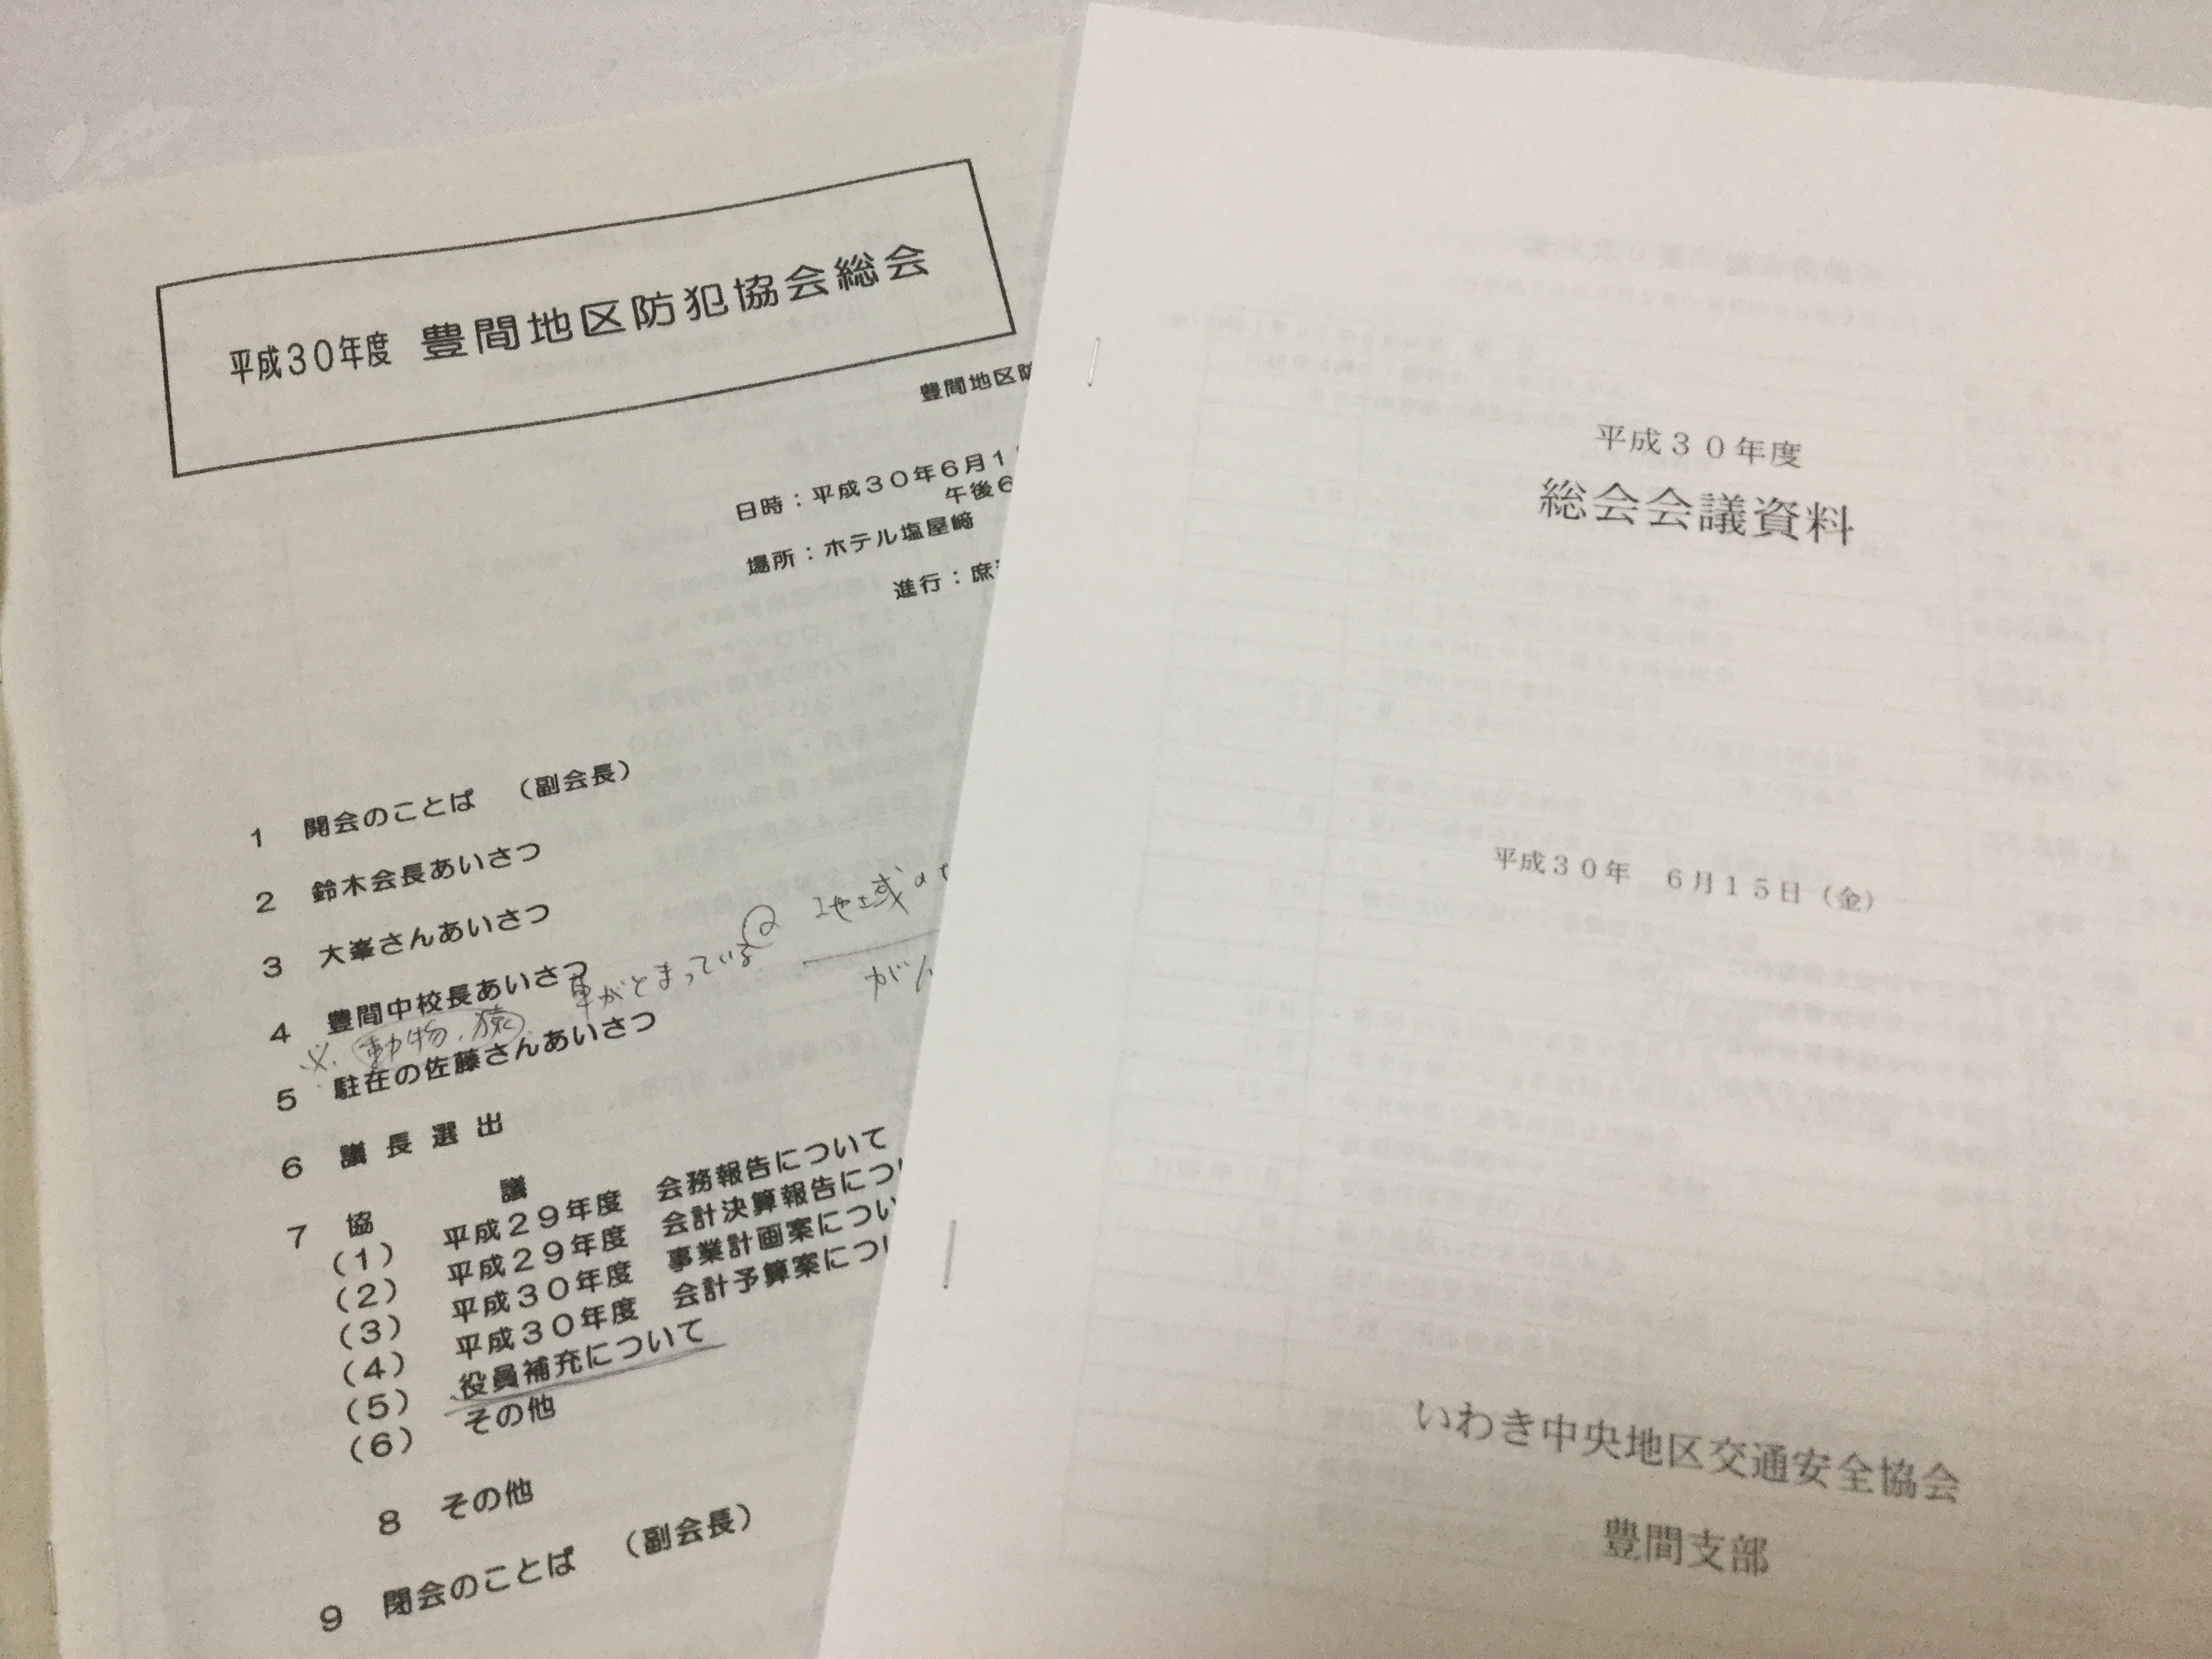 平成30年度 豊間地区防犯協会総会
豊間地区防
日時：平成30年6月1
午後6
場所：ホテル塩屋崎
進行：庶
1 開会のことば （副会長）
2 鈴木会長あいさつ
3 大峯さんあいさつ
地域の
車がとまっている
が
4 豊間中校長あいさつ
※ 動物、猿
5 駐在の佐藤さんあいさつ
6 議長選出
7 協 議
（1） 平成29年度 会務報告について
（2） 平成29年度 会計決算報告につい
（3） 平成30年度 事業計画案につい
（4） 平成30年度 会計予算案につい
（5） 役員補充について
（6） その他
8 その他
9 閉会のことば （副会長）
平成30年度
総会会議資料
平成30年 6月15日（金）
いわき中央地区交通安全協会
豊間支部